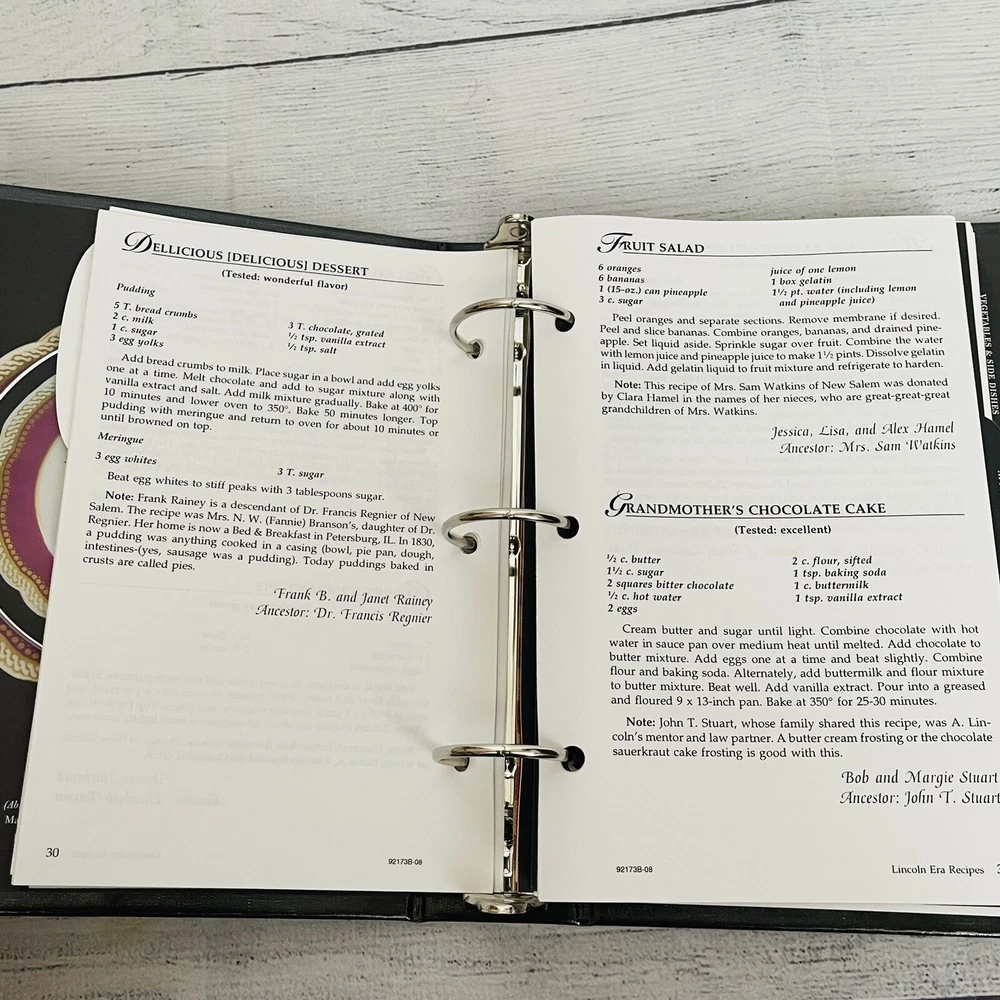 DELLICIOUS [DELICIOUS] DESSERT
(Tested: wonderful flavor)
Pudding
5 T. bread crumbs
2 c. milk
1 c. sugar
3 egg yolks
3 T. chocolate, grated
½ tsp. vanilla extract
½ tsp. salt
Add bread crumbs to milk. Place sugar in a bowl and add egg yolks
one at a time. Melt chocolate and add to sugar mixture along with
vanilla extract and salt. Add milk mixture gradually. Bake at 400° for
10 minutes and lower oven to 350°. Bake 50 minutes longer. Top
pudding with meringue and return to oven for about 10 minutes or
until browned on top.
Meringue
3 egg whites
3 T. sugar
Beat egg whites to stiff peaks with 3 tablespoons sugar.
Note: Frank Rainey is a descendant of Dr. Francis Regnier of New
Salem. The recipe was Mrs. N. W. (Fannie) Branson's, daughter of Dr.
Regnier. Her home is now a Bed & Breakfast in Petersburg, IL. In 1830,
a pudding was anything cooked in a casing (bowl, pie pan, dough,
intestines-(yes, sausage was a pudding). Today puddings baked in
crusts are called pies.
Frank B. and Janet Rainey
Ancestor: Dr. Francis Regnier
30
92173B-08
FRUIT SALAD
6 oranges
6 bananas
1 (15-oz.) can pineapple
3 c. sugar
juice of one lemon
1 box gelatin
1½ pt. water (including lemon
and pineapple juice)
Peel oranges and separate sections. Remove membrane if desired.
Peel and slice bananas. Combine oranges, bananas, and drained pine-
apple. Set liquid aside. Sprinkle sugar over fruit. Combine the water
with lemon juice and pineapple juice to make 1½ pints. Dissolve gelatin
in liquid. Add gelatin liquid to fruit mixture and refrigerate to harden.
Note: This recipe of Mrs. Sam Watkins of New Salem was donated
by Clara Hamel in the names of her nieces, who are great-great-great
grandchildren of Mrs. Watkins.
Jessica, Lisa, and Alex Hamel
Ancestor: Mrs. Sam Watkins
GRANDMOTHER'S CHOCOLATE CAKE
(Tested: excellent)
½ c. butter
1½ c. sugar
2 squares bitter chocolate
½ c. hot water
2 eggs
2 c. flour, sifted
1 tsp. baking soda
1 c. buttermilk
1 tsp. vanilla extract
Cream butter and sugar until light. Combine chocolate with hot
water in sauce pan over medium heat until melted. Add chocolate to
butter mixture. Add eggs one at a time and beat slightly. Combine
flour and baking soda. Alternately, add buttermilk and flour mixture
to butter mixture. Beat well. Add vanilla extract. Pour into a greased
and floured 9 x 13-inch pan. Bake at 350° for 25-30 minutes.
Note: John T. Stuart, whose family shared this recipe, was A. Lin-
coln's mentor and law partner. A butter cream frosting or the chocolate
sauerkraut cake frosting is good with this.
Bob and Margie Stuart
Ancestor: John T. Stuart
92173B-08
Lincoln Era Recipes
VEGETABLES & SIDE DISHES